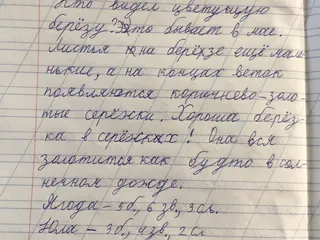 Кто видел цветущую
берёзу? Это бывает в мае.
Листья на берёзе ещё мале-
нькие, а на концах веток
появляются коричнево-золо-
тые серёжки. Хороша берёз-
ка в серёжках! Она вся
золотится как будто в сол-
нечном дожде.
Ягода – 5б., 6 зв., 3 сл.
Юла – 3б., 4 зв., 2 сл